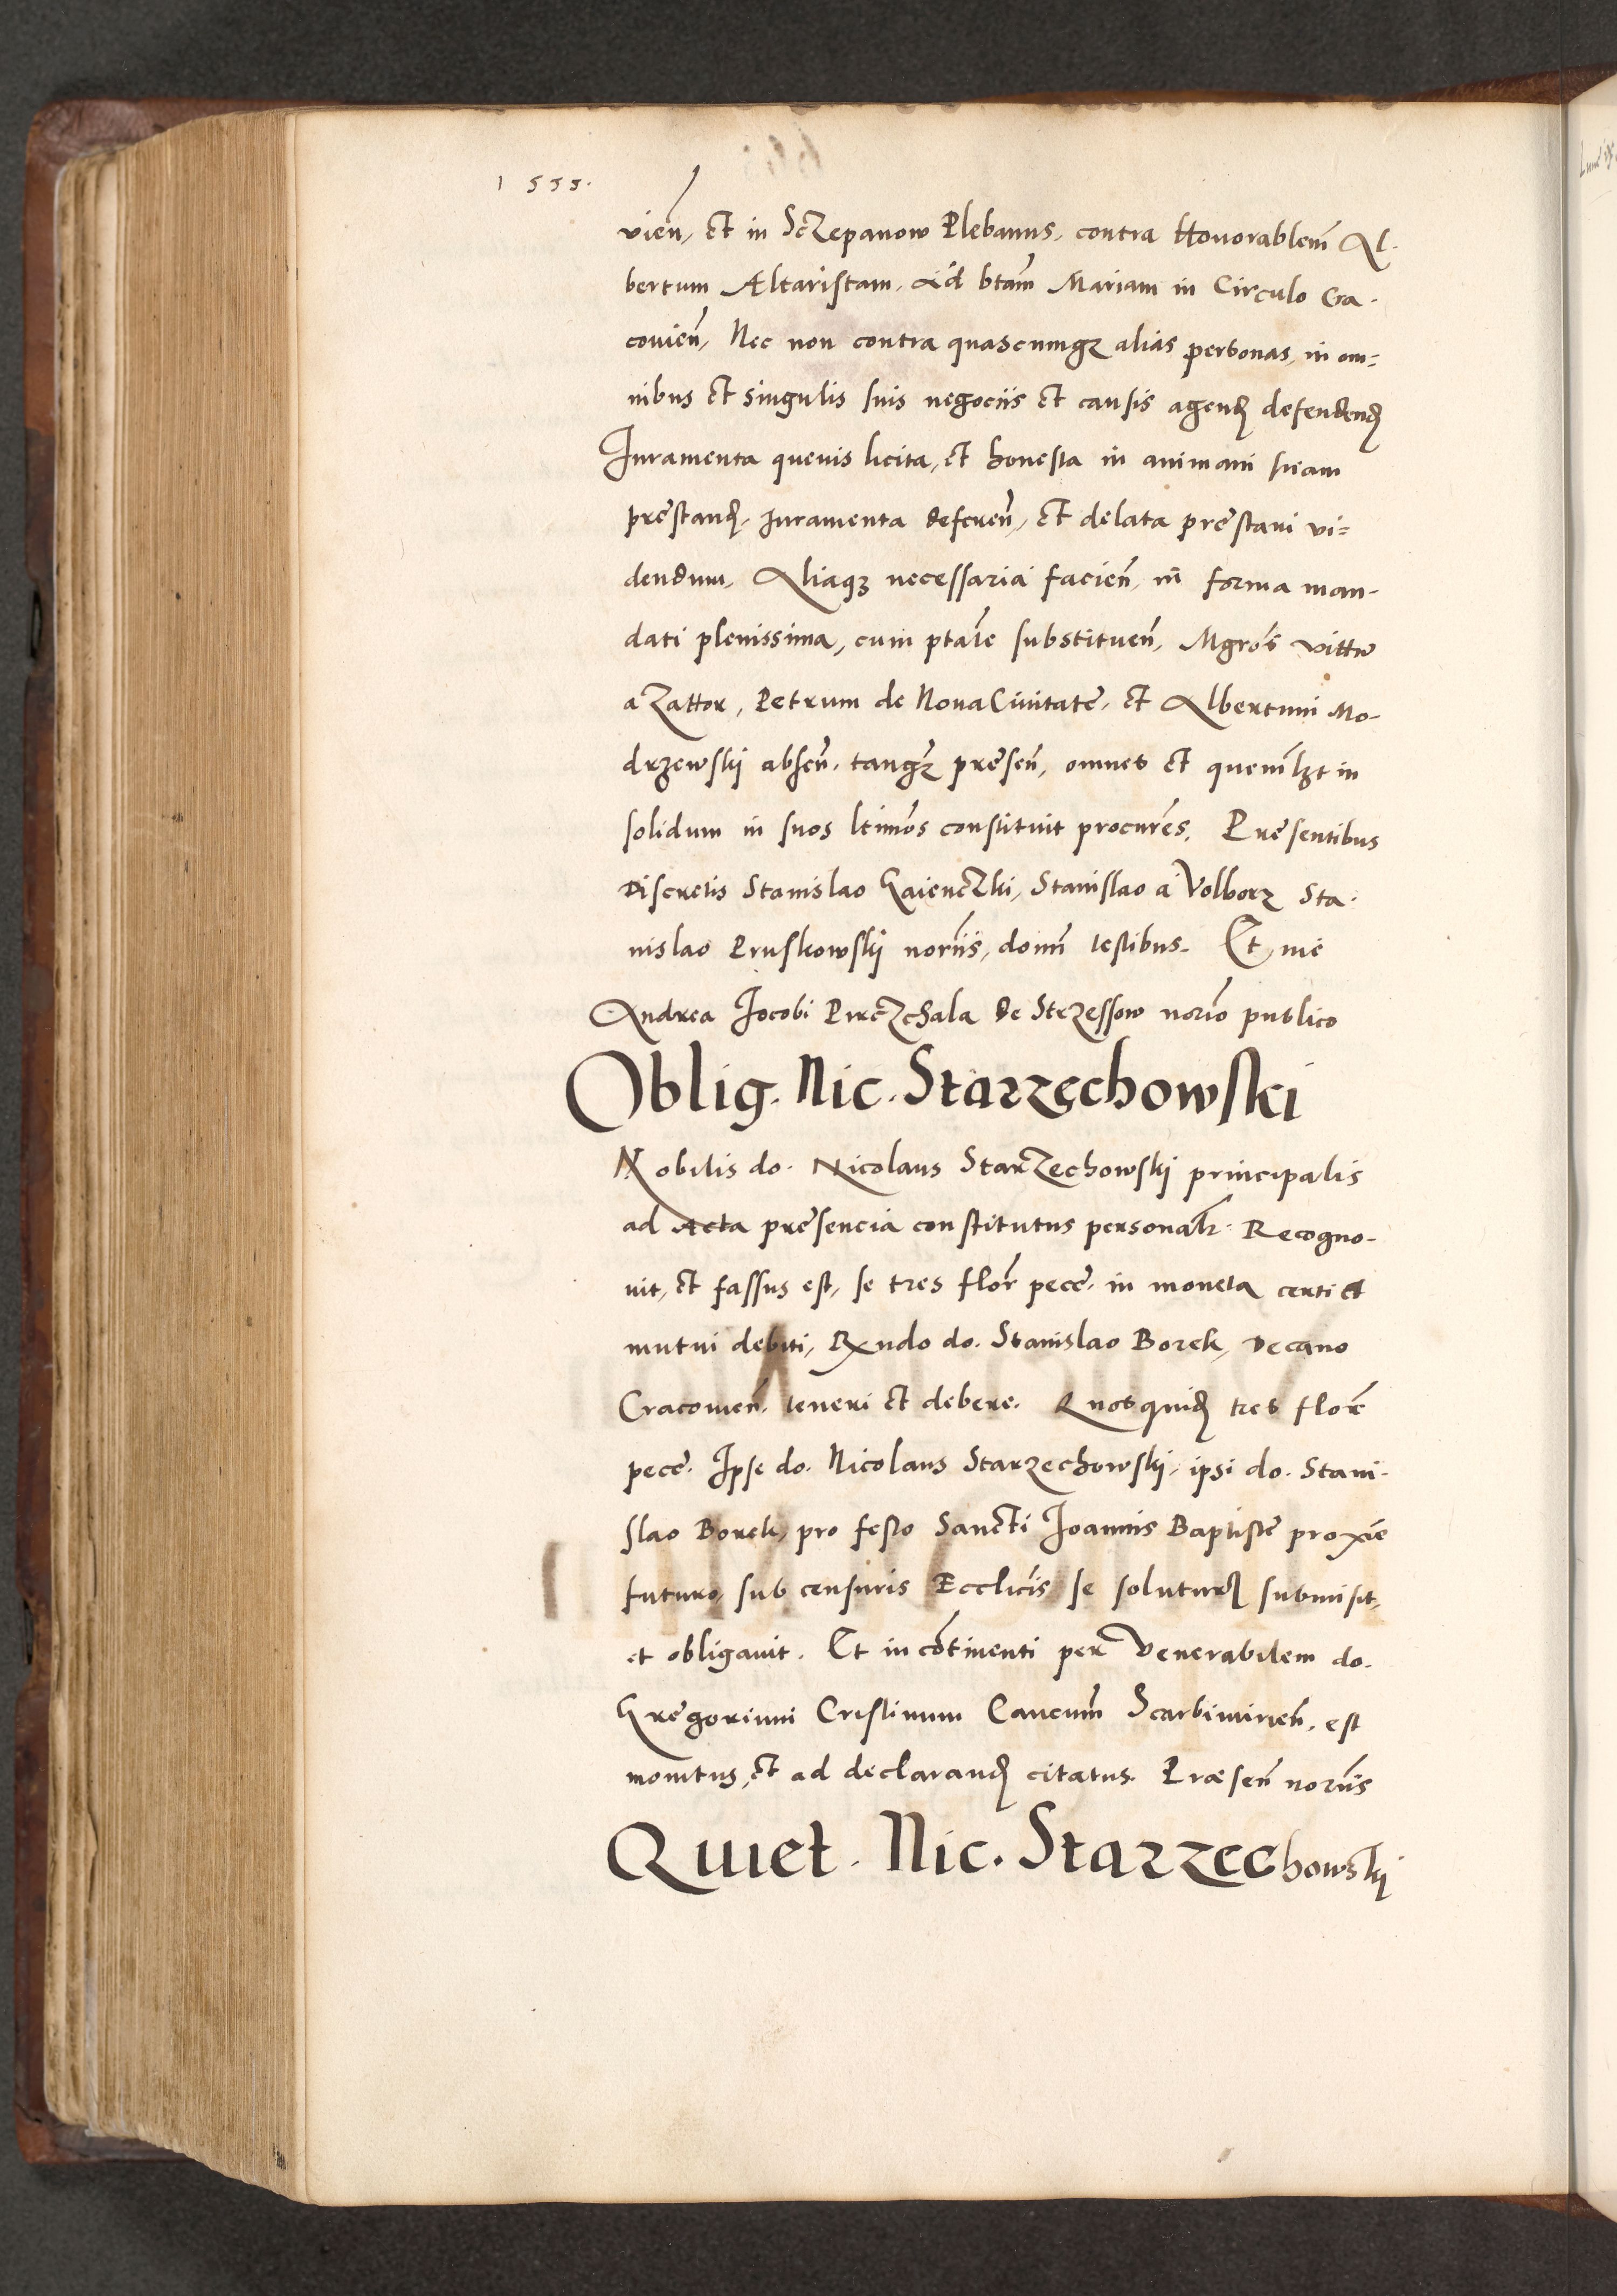 1555.
vien̄, et in Sczepanow Plebanus, contra Honorablem̄ Al-
bertum Altaristam, ad btam̄ Mariam in Circulo Cra-
covien̄, Nec non contra quascumqꝫ alias personas, in om=
nibus et singulis suis negociis et causis agenđ defendenđ
Iuramenta quevis licita, et honesta in animam suam
prestanđ, Iuramenta deferen̄, et delata prestari vi=
dendum, Aliaqꝫ necessaria facien̄, in forma man-
dati plenissima, cum ptāte substituen̄, Mgros̄ Vittū
a Zattor, Petrum de Nova Civitate, et Albertum Mo-
drzewski absen̄. tanqꝫ presen̄, omnes et quemlꝫt in
solidum in suos ltimōs constituit procurēs, Presentibus
Discretis Stanislao Gaienczki, Stanislao a Volborz Sta-
nislao Pruskowski noriīs, domn̄ testibus. Et me
Andrea Jacobi Pirczchala de Strzessow norīo publico
Oblig. Nic. Starzechowski
Nobilis do. Nicolaus Starzechowskj principalis
ad Acta presencia constitutus personalr̄. Recogno-
vit, et fassus est, se tres flor̄ pecē. in moneta certi et
mutui debiti, Rxndo do. Stanislao Borek, Decano
Cracovien̄. teneri et debere. Quosquiđ tres florē
pecē. Ipse do. Nicolaus Starzechowski, ipsi do. Stani-
slao Borek, pro festo Sancti Joannis Baptiste proxīe
futuro, sub censuris Ecclicīs se soluturꝫ submisit,
et obligavit. Et incōtinenti per Venerabilem do.
Gregorium Cristinum Cancum̄ Scarbimirien̄. est
monitus, et ad declaranđ citatus. Præsen̄ noriīs
Quiet. Nic. Starzechowskj